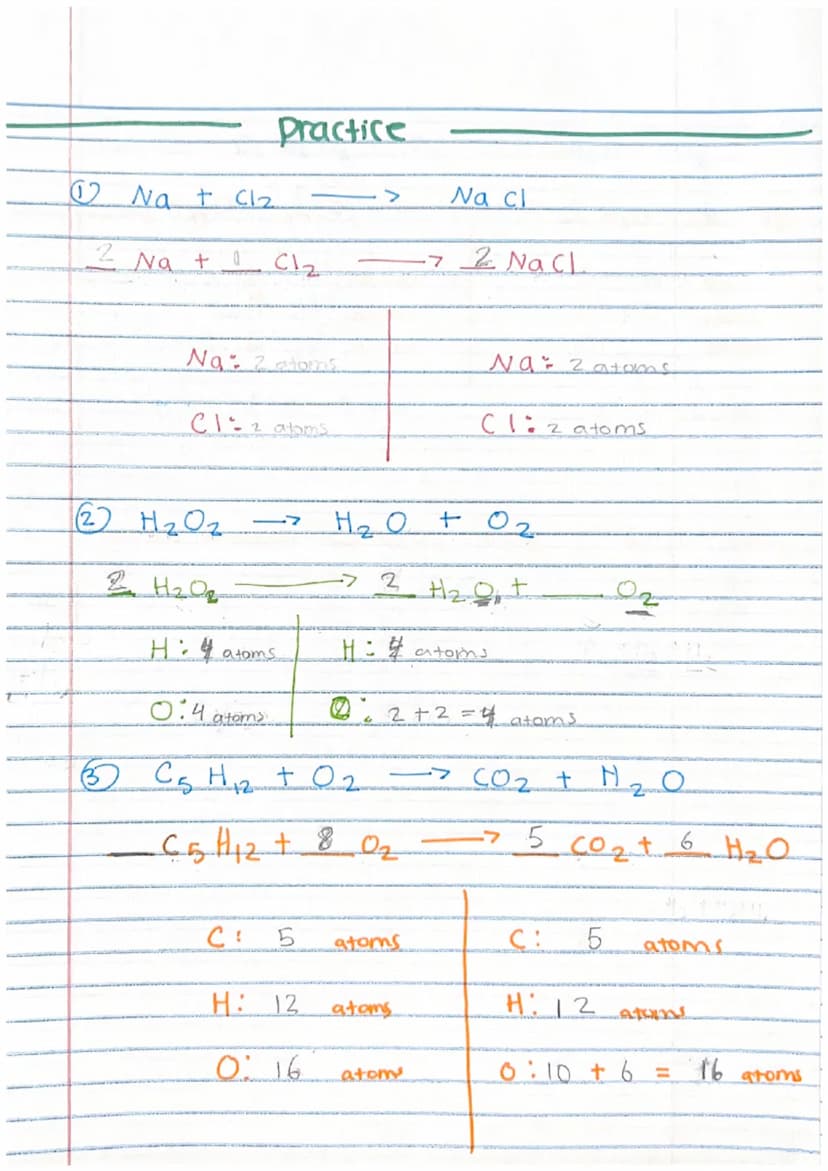 Practice
① Na + Cl₂ → NaCl
2 Na + 1 Cl₂ → 2 NaCl
Na: 2 atoms Na: 2 atoms
Cl: 2 atoms Cl: 2 atoms
② H₂O₂ → H₂O + O₂
2 H₂O₂ → 2 H₂O + __ O₂
H: 4 atoms H: 4 atoms
O: 4 atoms O: 2 + 2 = 4 atoms
③ C₅H₁₂ + O₂ → CO₂ + H₂O
__ C₅H₁₂ + 8 O₂ → 5 CO₂ + 6 H₂O
C: 5 atoms C: 5 atoms
H: 12 atoms H: 12 atoms
O: 16 atoms O: 10 + 6 = 16 atoms